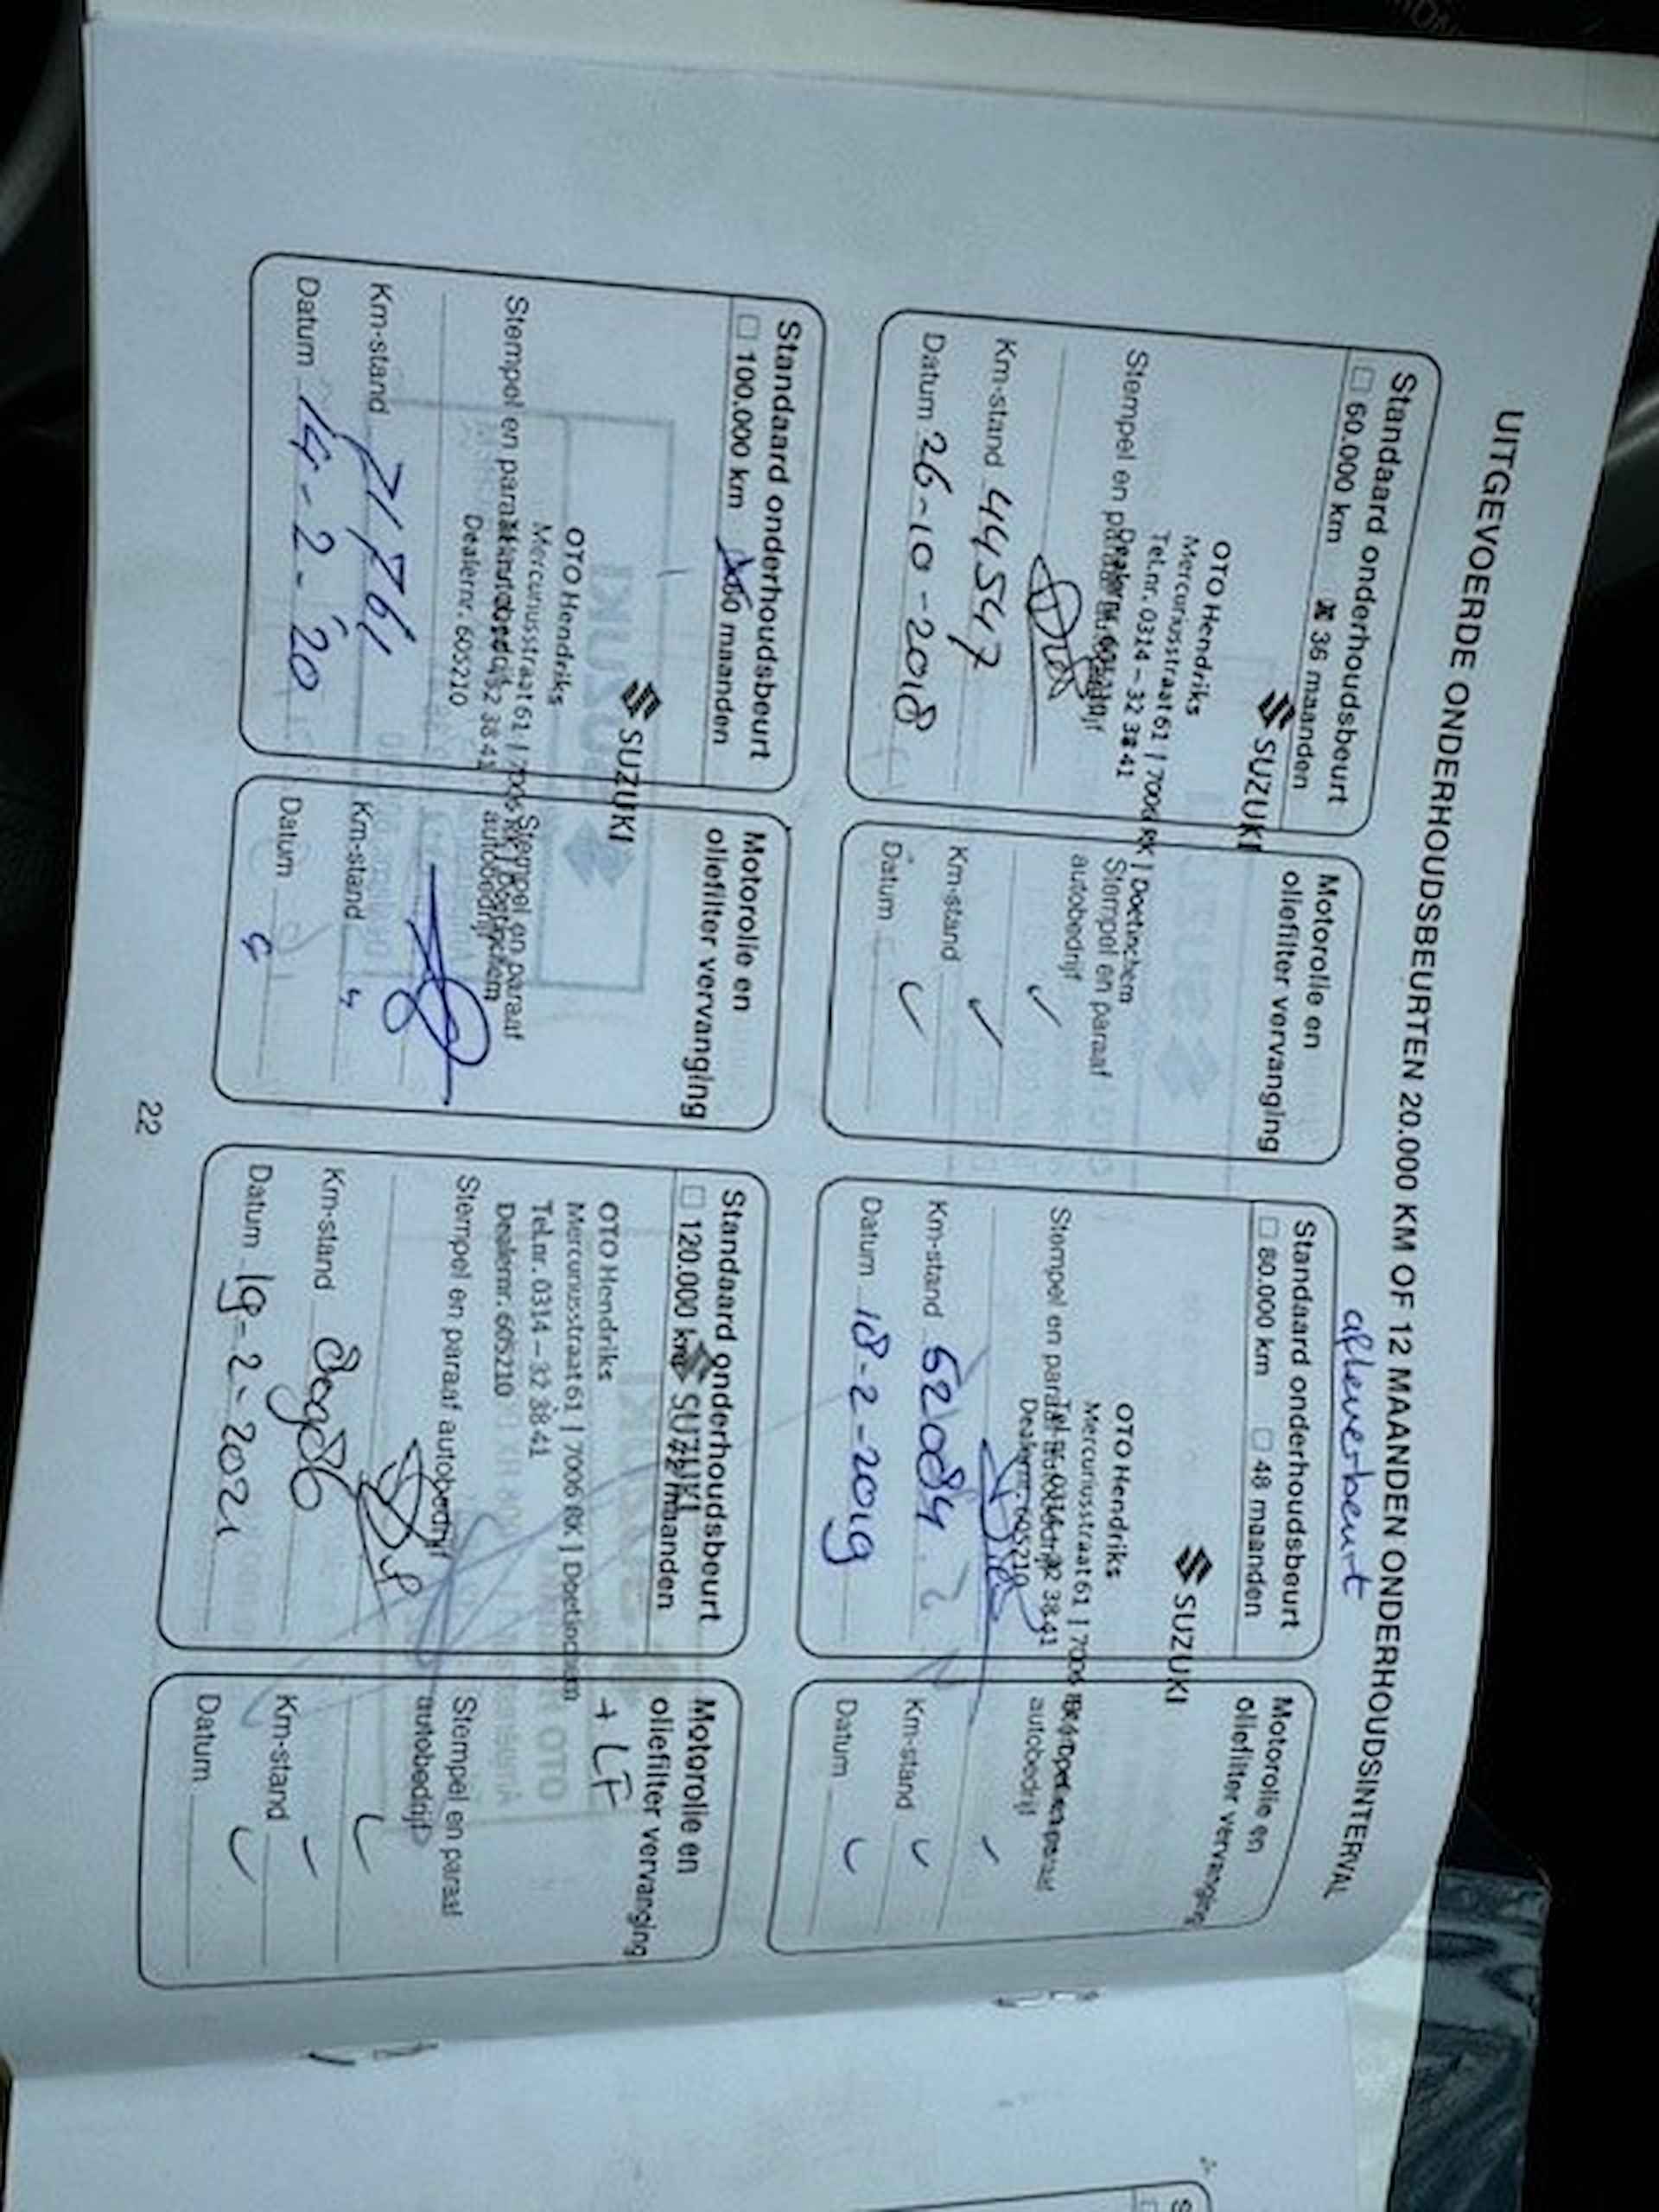 UITGEVOERDE ONDERHOUDSBEURTEN 20.000 KM OF 12 MAANDEN ONDERHOUDSINTERVAL
afleverbeurt
Standaard onderhoudsbeurt
☐ 60.000 km ☒ 36 maanden
SUZUKI
OTO Hendriks
Mercuriusstraat 61 | 7006 RK | Doetinchem
Tel.nr. 0314 – 32 38 41
Stempel en
Km-stand 44547
Datum 26-10-2018
Motorolie en
oliefilter vervanging
Stempel en paraaf
autobedrijf
Km-stand ✓
Datum ✓
Standaard onderhoudsbeurt
☐ 80.000 km ☐ 48 maanden
SUZUKI
OTO Hendriks
Mercuriusstraat 61 | 7006
Stempel en
38 41
Dealernr. 605210
Km-stand 62084
Datum 18-2-2019
Motorolie en
oliefilter vervanging
autobedrijf
Km-stand ✓
Datum ✓
Standaard onderhoudsbeurt
☐ 100.000 km 60 maanden
SUZUKI
OTO Hendriks
Mercuriusstraat 61 | 7006 RK | Doetinchem
Stempel en
Dealernr. 605210
Km-stand 71761
Datum 14-2-'20
Motorolie en
oliefilter vervanging
Stempel en paraaf
autobedrijf
Km-stand
Datum
Standaard onderhoudsbeurt
☐ 120.000 km maanden
SUZUKI
OTO Hendriks
Mercuriusstraat 61 | 7006 RK | Doetinchem
Tel.nr. 0314 – 32 38 41
Dealernr. 605210
Stempel en paraaf autobedrijf
Km-stand
Datum 19-2-2021
Motorolie en
oliefilter vervanging
+ LF
Stempel en paraaf
autobedrijf
Km-stand ✓
Datum ✓
22